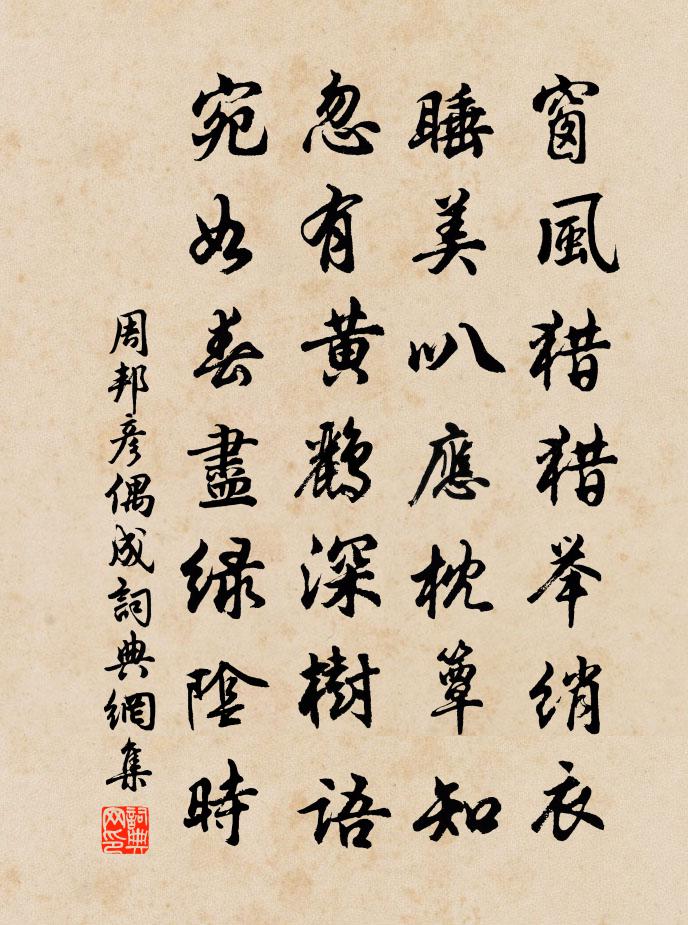 窗風猎猎举绡衣
睡美叭應枕簟知
忽有黄鸝深樹語
宛如春盡緑陰時
周邦彦偶成詞典網集
詞典网印